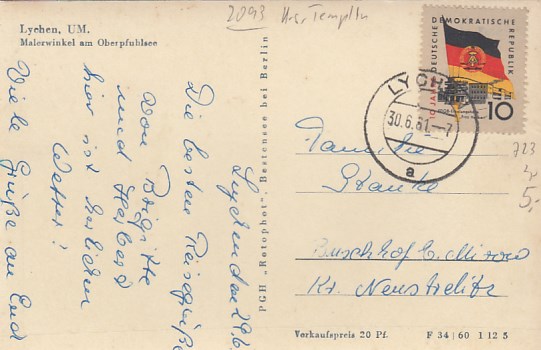 Lychen, UM.
Malerwinkel am Oberpfuhlsee
2093 Krs. Templin
Lychen den 29.6.
Die besten Reisegrüße
von Brigitte
und Herbert
hier ist herlichen
Wetter!
Viele Grüße an Euch
PGH „Rotophot", Bestensee bei Berlin
10 JAHRE DEUTSCHE DEMOKRATISCHE REPUBLIK
10
LYCHEN
30.6.61.-7
a
Familie
Stanke
Buschhof b. Mirow
Kr. Neustrelitz
723
5,-
Verkaufspreis 20 Pf.
F 34 | 60 1 12 5